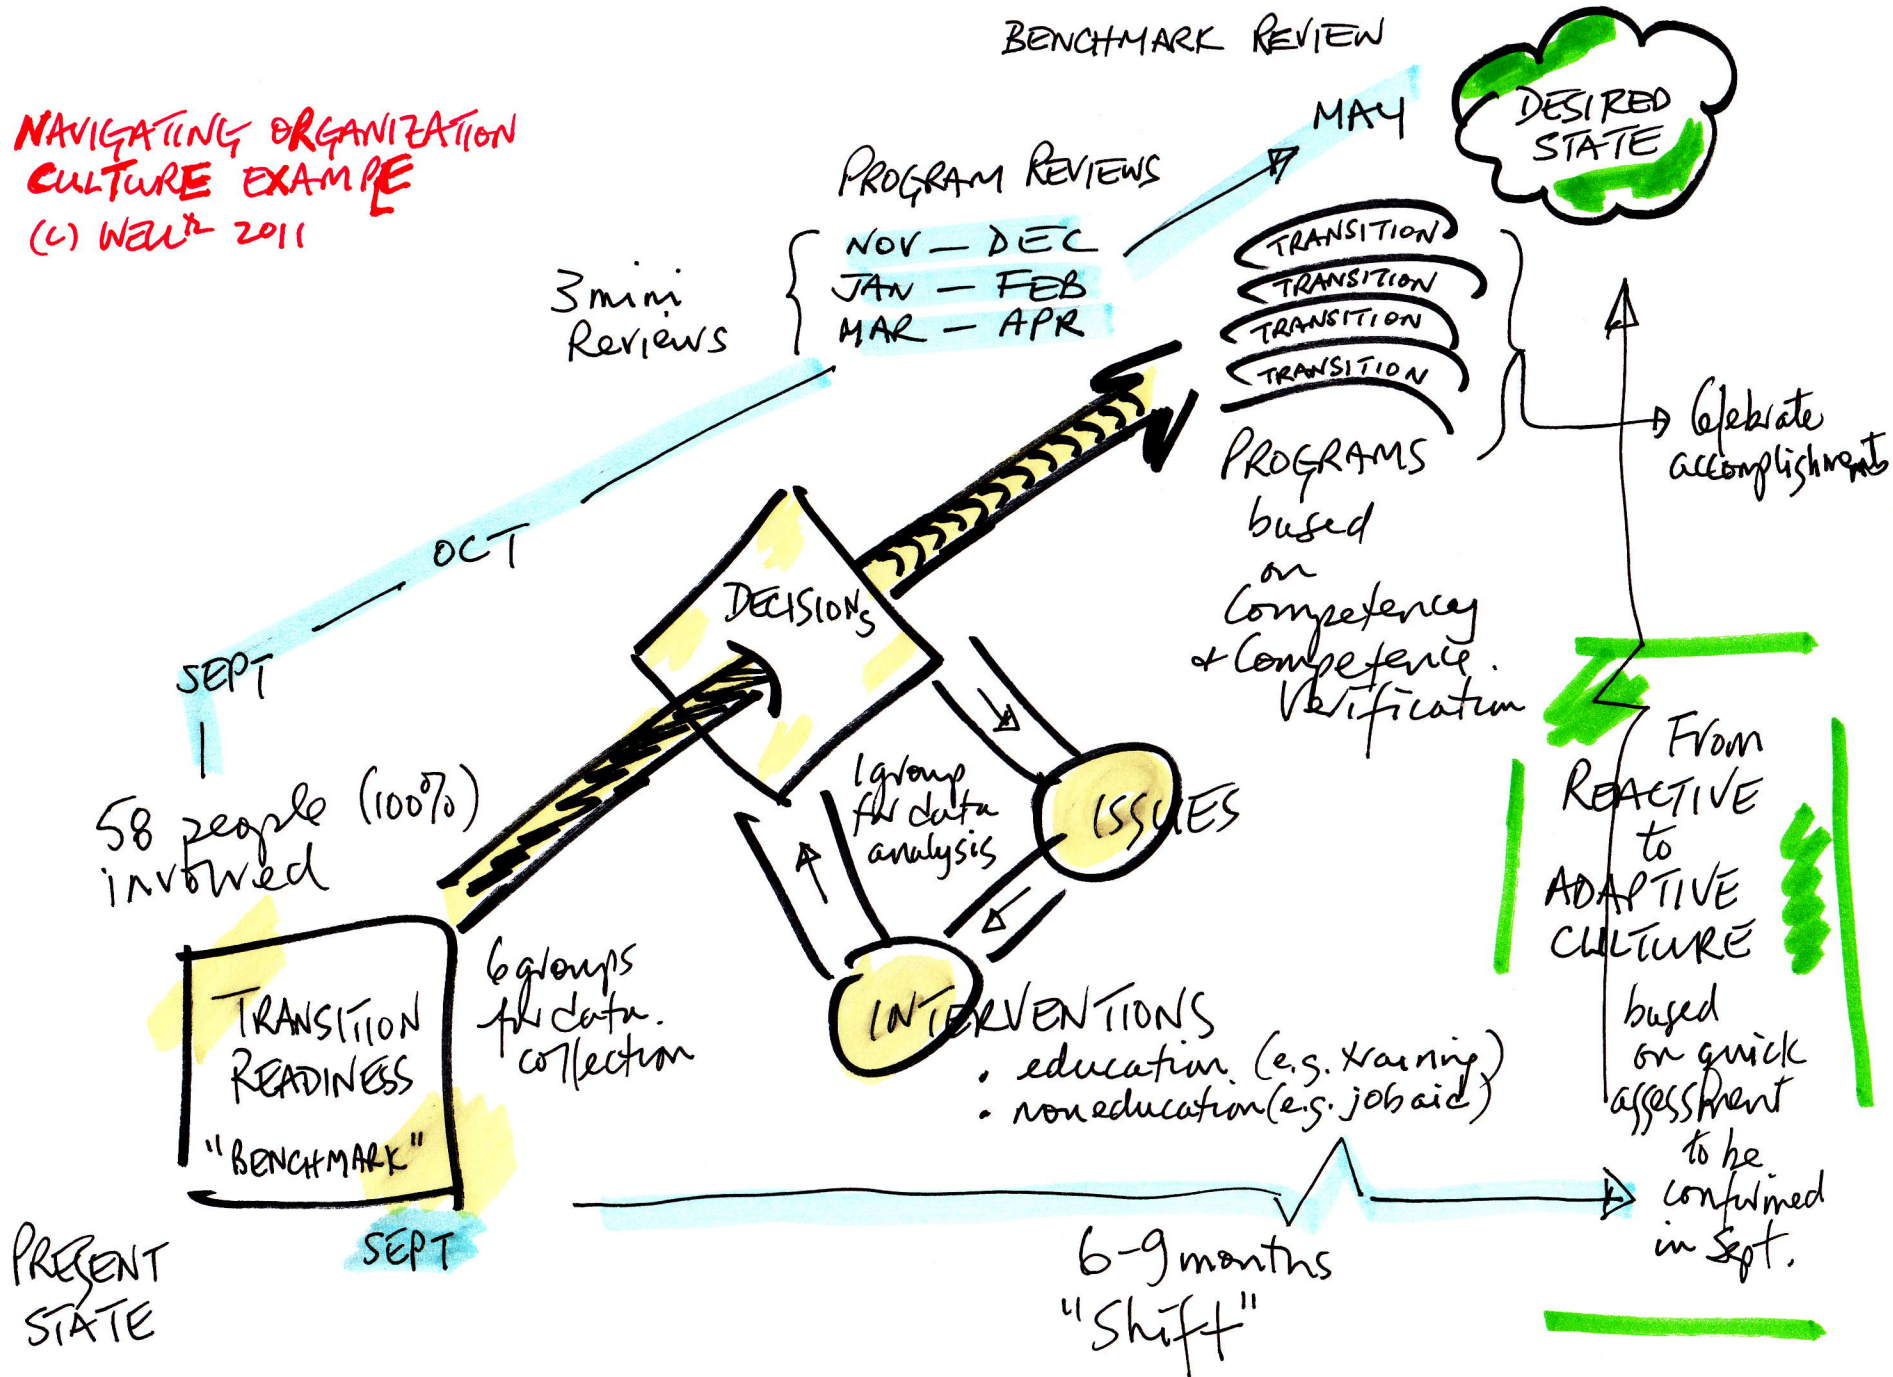 NAVIGATING ORGANIZATION
CULTURE EXAMPLE
(C) WELL 2011
BENCHMARK REVIEW
MAY
DESIRED
STATE
PROGRAM REVIEWS
NOV – DEC
JAN – FEB
MAR – APR
3 mini
Reviews
OCT
SEPT
TRANSITION
TRANSITION
TRANSITION
TRANSITION
PROGRAMS
based
on
Competency
+ Competence
Verification
Celebrate
accomplishments
DECISIONS
1 group
for data
analysis
ISSUES
INTERVENTIONS
• education (e.g. training)
• noneducation (e.g. job aid)
58 people (100%)
involved
6 groups
for data
collection
TRANSITION
READINESS
"BENCHMARK"
SEPT
PRESENT
STATE
6-9 months
"Shift"
From
REACTIVE
to
ADAPTIVE
CULTURE
based
on quick
assessment
to be
confirmed
in Sept.